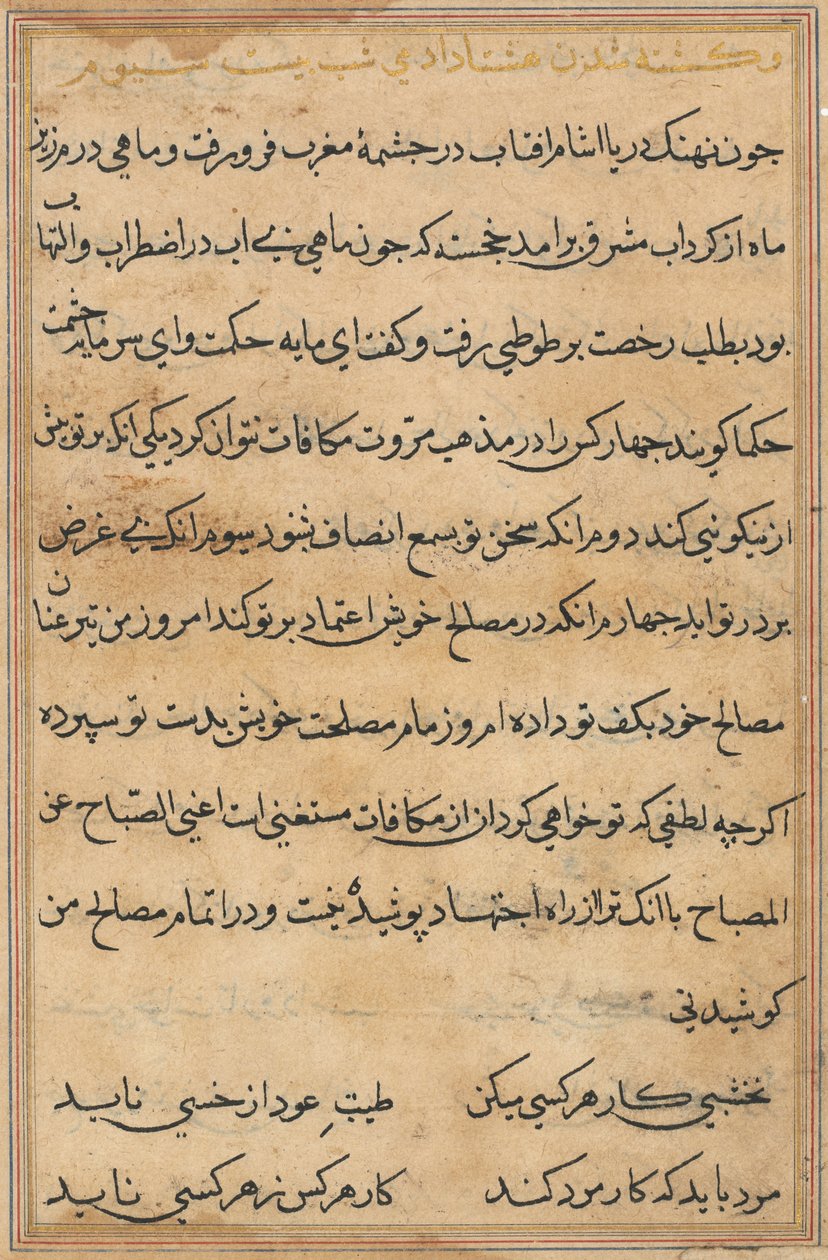 وكشته شدن هشتاد ادمي شب بيست سيوم
جون نهنك دريا اشام افتاب در جشمهٔ مغرب فرو رفت و ماهي در مرزيز
ماه از كرداب مشرق برامد خجسته كه جون ماهي بي اب در اضطراب و التهاب
بود بطلب رخصت بر طوطي رفت و كفت اي مايه حكمت و اي سرمايه حشمت
حكما كويند جهار كس را در مذهب مرّوت مكافات نتوان كرد يكي انك بر تو بيش
از نيكويي كند دوم انكه سخن تو بسمع انصاف شنود سيوم انك بي غرض
بر در تو ايد جهارم انكه در مصالح خويش اعتماد بر تو كند امروز من نيز عنان
مصالح خود بكف تو داده ام و زمام مصلحت خويش بدست تو سپرده
اكرچه لطفي كه تو خواهي كرد ان از مكافات مستغني است اغني الصّباح عن
المصباح با انك ترا از راه اجتهاد پوشيده نيست و در اتمام مصالح من
كوشيدني
نخشبي كار هر كسي ميكن
طيبِ عود از خسي نايد
مرد بايد كه كار مرد كند
كار هر كس ز هر كسي نايد